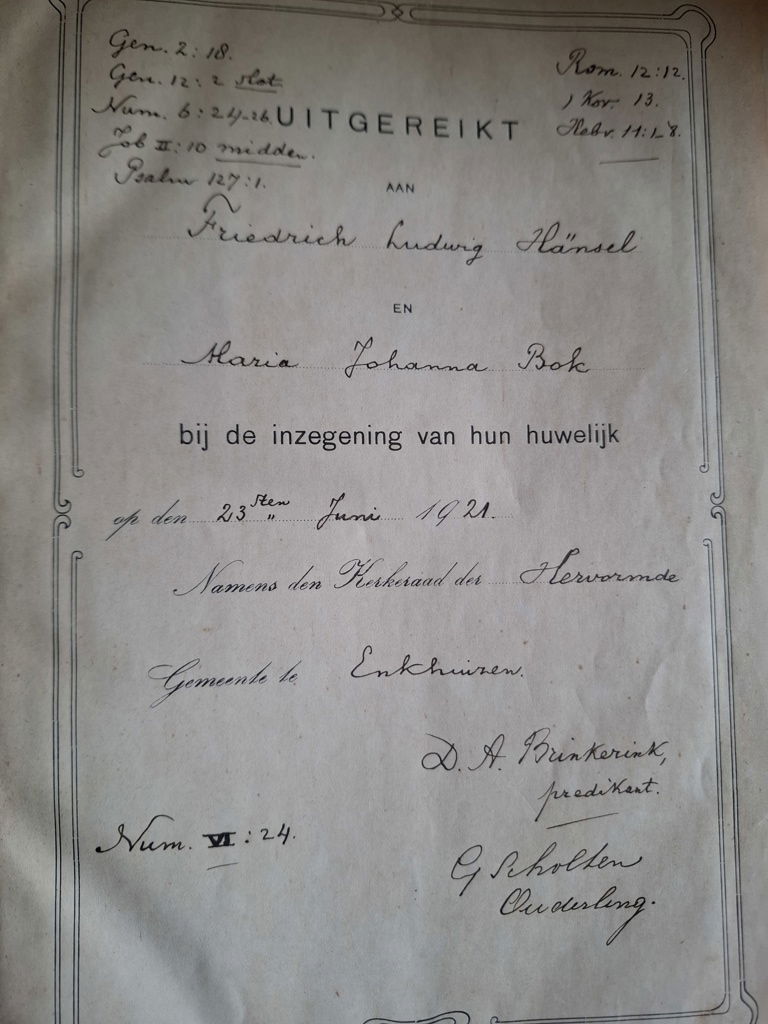 Gen. 2:18.
Gen. 12:2 slot
Num. 6:24-26.
Job II:10 midden.
Psalm 127:1.
Rom. 12:12.
1 Kor. 13.
Hebr. 11:1-8.
UITGEREIKT
AAN
Friedrich Ludwig Hänsel
EN
Maria Johanna Bok
bij de inzegening van hun huwelijk
op den 23sten " Juni 1921.
Namens den Kerkeraad der Hervormde
Gemeente te Enkhuizen.
D. A. Brinkerink,
predikant.
Num. VI:24.
G Scholten
Ouderling.